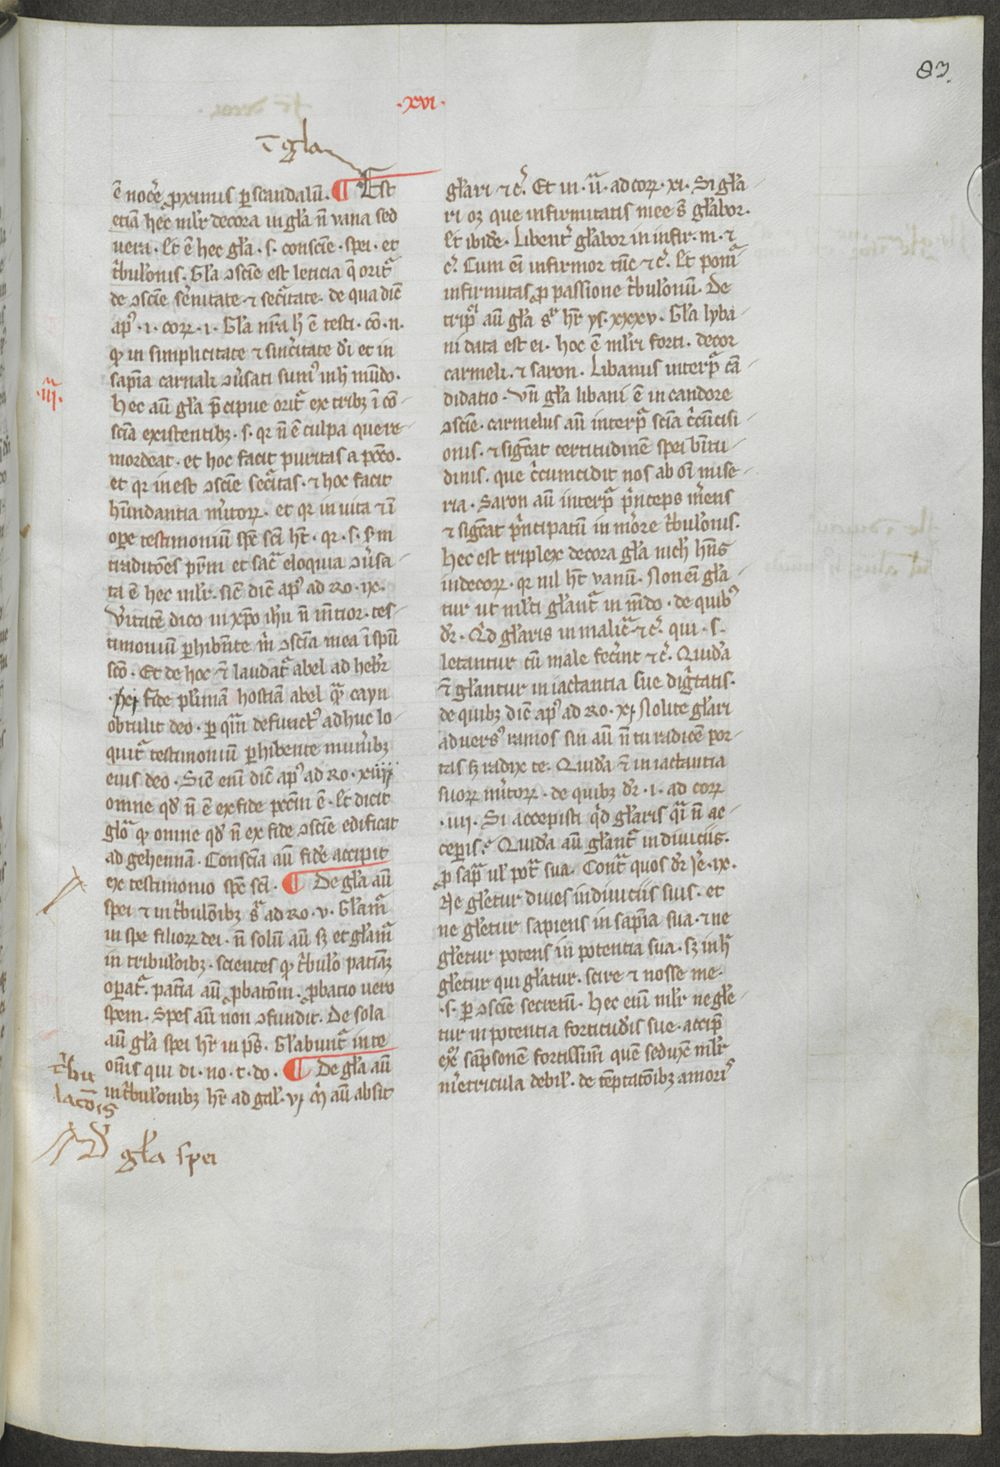 83.
·xvi·
ī gła
ē nocēr proximus per scandalū. ¶ Est
etiā hec mulr decora in gła n̄ vana sed
vera. Et ē hec gła .s. consciē. spei. et
tribulonis. Gła ɔsciē est leticia q̄ orit᷑
de ɔsciē serenitate ⁊ secitate. de qua dic̄
ap᷒ .i. corꝝ .i. Gła nr̄a h̄ ē testi. cō. n.
ꝙ in simplicitate ⁊ sinceritate di et in
sapīa carnali ɔu̇sati sum᷒ in h̄ mūdo.
·iij·
Hec aū gła p̄cipue orit᷑ ex tribꝫ ī cō
sciā existentibꝫ .s. qr n̄ ē culpa que re
mordeat. et hoc facit puritas a pccō.
et qr inest ɔsciē secitas. ⁊ hoc facit
habundantia mitoꝝ. et qr in vita ⁊ ī
ope testimoniū sps̄ sci hr̄. qr .s. sm
traditōes patrum et sac᷑ eloquia ɔu̇sa
ta ē hec mulr. sic̄ dic̄ ap᷒ ad Ro. ix.
Vitatē dico in xp̄o ih̄u n̄ mentior. tes
timoniū perhibēte m̄ ɔsciā mea ī spū
scō. Et de hoc ē laudat᷑ abel ad hebr
·xi· fide plimā hostiā abel q᷑ cayn
obtulit deo. per quā defunct᷒ adhuc lo
quit᷑ testimoniū perhibente munibꝫ
eius deo. Sic̄ enī dic̄ ap᷒ ad Ro. xiiij
omne qd̄ n̄ ē ex fide pccm̄ ē. Et dicit
glo᷑ ꝙ omne qd̄ n̄ ex fide ɔsciē edificat
ad gehennā. Consciā aū fide accipit
ex testimonio sps̄ sci. ¶ De gła aū
spei ⁊ in tribulonibꝫ s᷑ ad Ro. v. Głam᷑
in spe filioꝝ dei. n̄ solū aū sꝫ et głam᷑
in tribulonibꝫ. scientes ꝙ tribulo patiāꝫ
operat᷑. patīa aū probatōm. probatio vero
spem. Spes aū non ɔfundit. De sola
aū gła spei hr̄ in ps̄. Głabunt᷑ in te
om̄s qui di. no. t. do. ¶ De gła aū
in tribulonibꝫ hr̄ ad gal. vi m̄ aū absit
tribu
latōis
gła spei
głari ⁊ c᷑. Et in .ii. ad corꝝ. xi. Si gła
ri oꝫ que infirmitatis mee s̄ głabor.
Et ibidē. Libent᷑ głabor in infir. m. ⁊
c᷑. Cum ei infirmor tūc ⁊ c᷑. Et ponit᷑
infirmitas pro passione tribulonū. De
triplici aū gła hr̄ ys. xxxv. Gła lyba
ni data est ei. hoc ē mulri forti. decor
carmeli. ⁊ saron. Libanus interp᷑ cā
didatio. Vn̄ gła libani ē in candore
ɔsciē. carmelus aū interp᷑ scīa circūcisi
onis. ⁊ significat certitudinē spei bītu
dinis. que circumcidit nos ab oī mise
ria. Saron aū interp᷑ p̄nceps merens
⁊ significat p̄ncipatū in merore tribulonis.
Hec est triplex decora gła nich̄ hn̄s
indecoꝝ. qr nil hr̄ vanū. Non enī gła
tur ut multi głant᷑ in mūdo. de quib᷒
dr̄. Qid głaris in malic᷑ ⁊ c᷑. qui .s.
letantur cū male fecint ⁊ c᷑. Quidā
ē głantur in iactantia sue dignitatis.
de quibꝫ dic̄ ap᷒ ad Ro. xi Nolite głari
advers᷒ ramos sin aū n̄ tu radicē por
tas sꝫ radix te. Quidā ē in iactantia
suoꝝ mitoꝝ. de quibꝫ dr̄ .i. ad corꝝ
.iiii. Si accepisti qid głaris q᷑ n̄ ac
ceperis. Quidā aū głant᷑ in diviciis.
pro sap᷑ ul pot᷑ sua. Cont᷑ quos dr̄ Je. ix.
Ne głetur dives in divitiis suis. et
ne głetur sapiens in sapīa sua. ⁊ ne
głetur potens in potentia sua. sꝫ in h̄
głetur qui głatur. scire ⁊ nosse me.
.s. per ɔsciē secretū. Hec enī mulr ne głe
tur in potentia fortitudīs sue. accip᷑
ex᷑ sampsonem fortissimū quē seduxit mulr
meretricula debil. de tēptatōibꝫ amoris